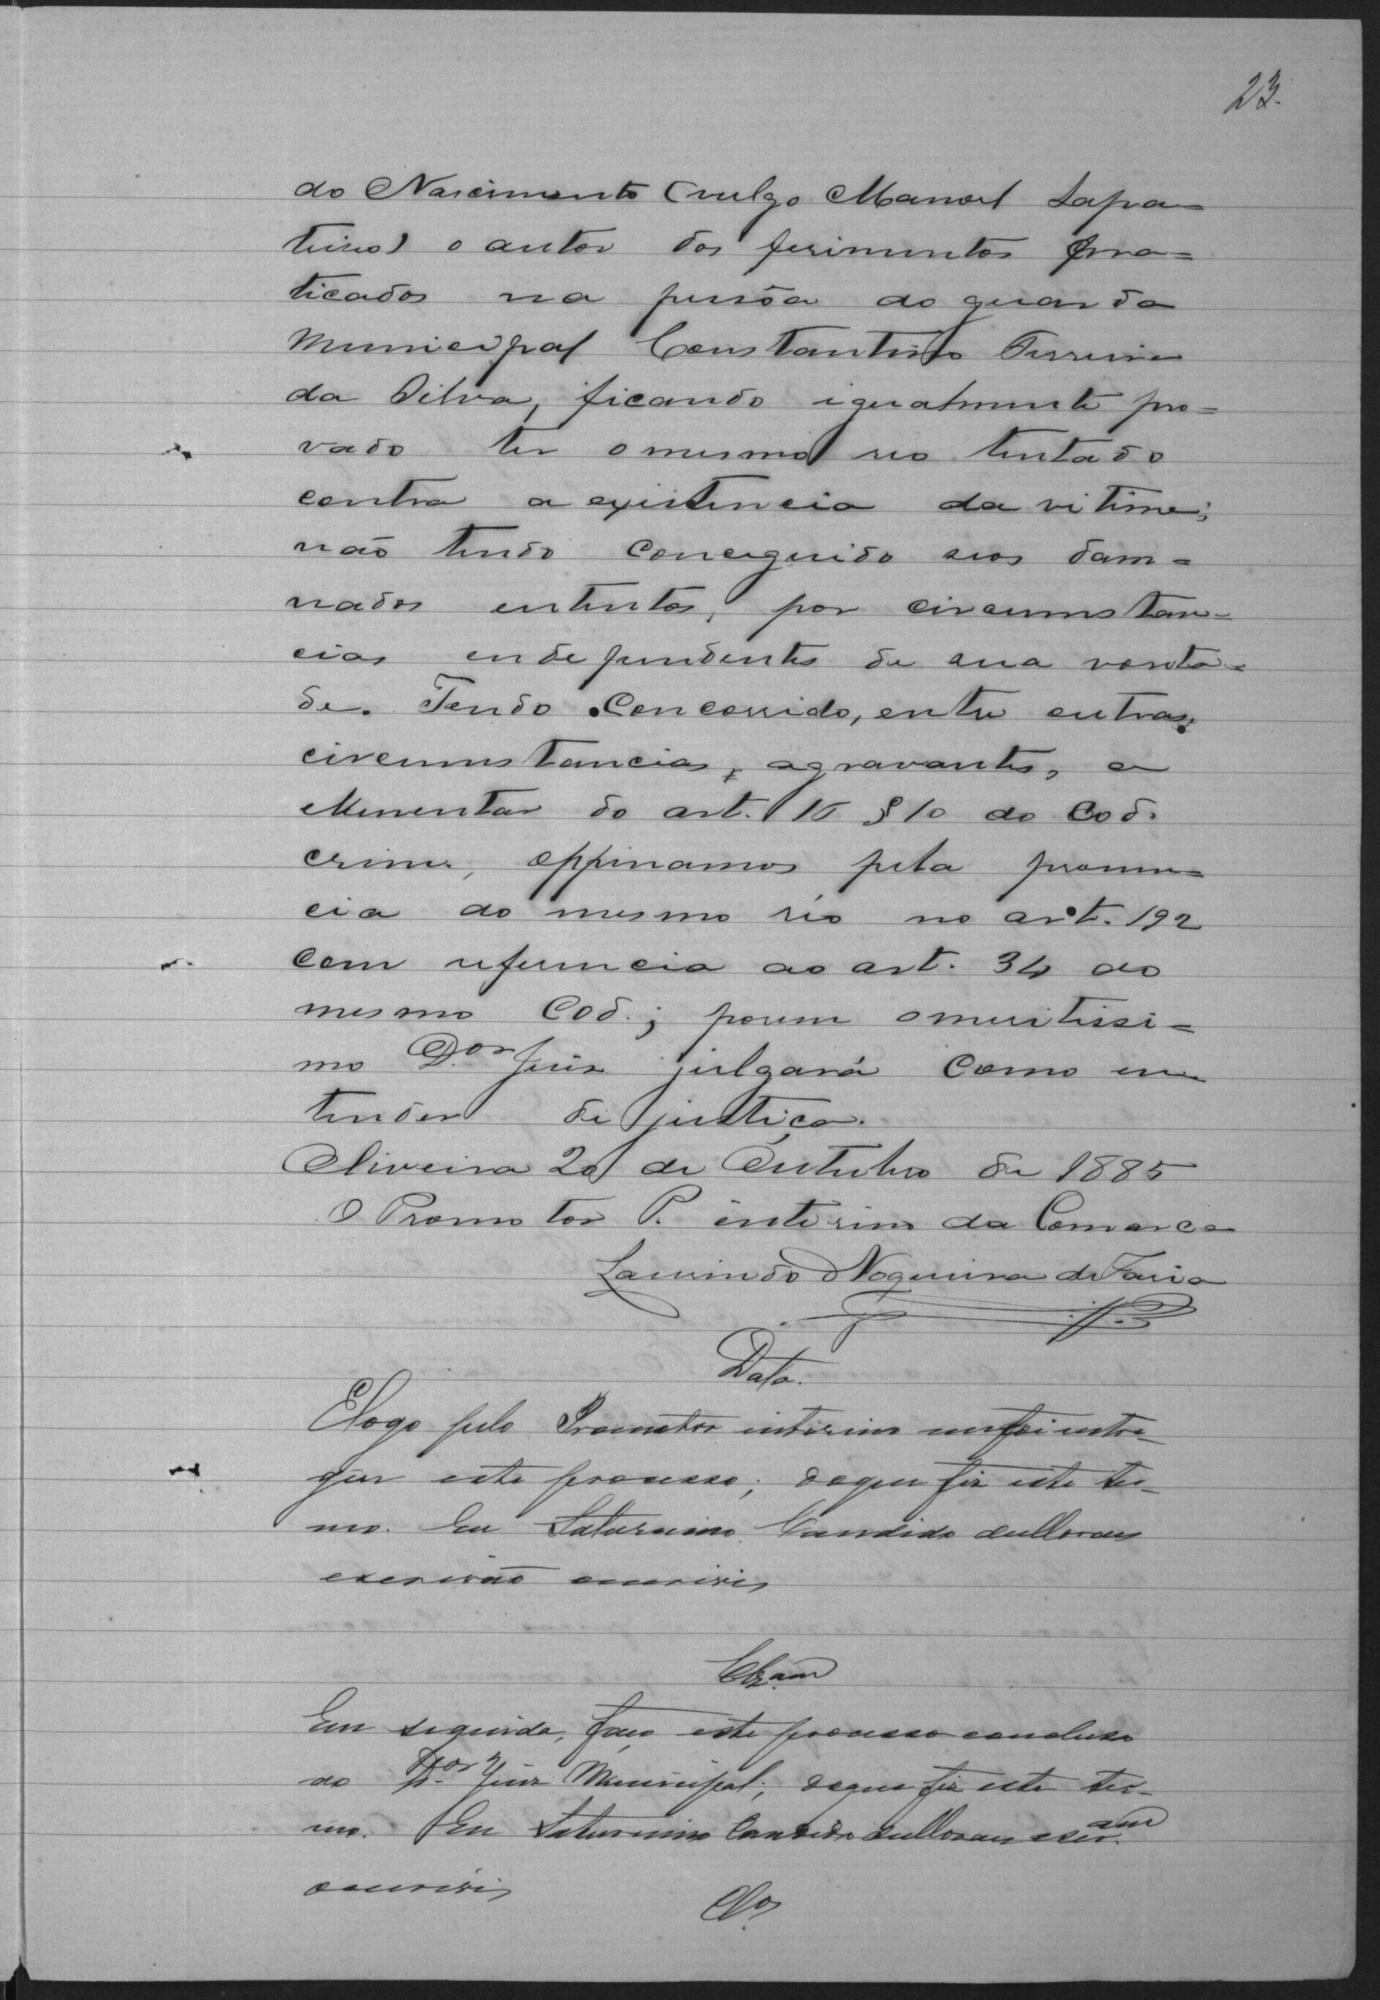 23.
do Nascimento (vulgo Manoel Sapa=
teiro) o autor dos ferimentos pra=
ticados na pessôa do guarda
Municipal Constantino Ferreira
da Silva, ficando igualmente pro=
vado ter o mesmo reo tentado
contra a existencia da vitima;
não tendo conceguido seos dam=
nados intentos, por circumstan=
cias endependentes de sua vonta=
de. Tendo concorrido, entre outras
circumstancias, agravantes, a
elementar do art. 16 § 10 do Cod.
crime, oppinamos pela pronun=
cia do mesmo réo no art. 192
com referencia ao art. 34 do
mesmo Cod.; porem o meritissi=
mo D.or Juis julgará como en
tender de justiça.
Oliveira 20 de Outubro de 1885
O Promotor P. interino da Comarca
Laurindo Nogueira de Faria
Data.
E logo pelo Promotor interino me foi entre-
gue este processo; do que fiz este ter-
mo. Eu Saturnino Candido de Moraes
escrivão escrivi
Clzam
Em seguida, faço este processo concluso
ao D.or Juiz Municipal; do que fiz este ter-
mo. Eu Saturnino Candido de Moraes escr.am
escrivi
Clos